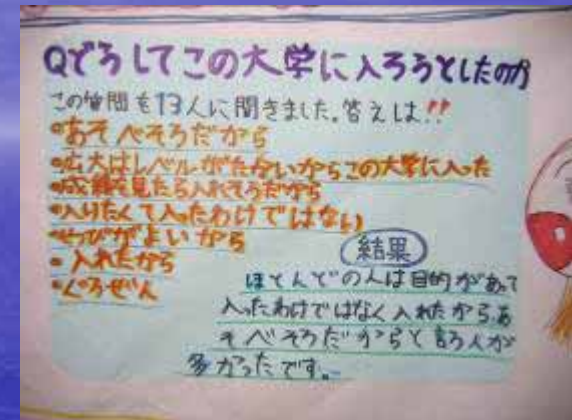 Qどうしてこの大学に入ろうとしたのか
この質問を13人に聞きました。答えは!!
•あそべそうだから
•広大はレベルがたかいからこの大学に入った
•成績を見たら入れそうだから
•入りたくて入ったわけではない
•せつびがよいから
•入れたから
•ぐうぜん
結果
ほとんどの人は目的があって
入ったわけではなく入れたからあ
そべそうだからと言う人が
多かったです。